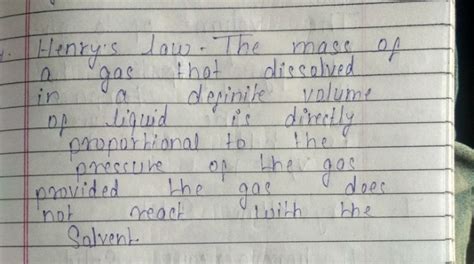 Henry's law - The mass of
a gas that dissolved
in a definite volume
of liquid is directly
proportional to the
pressure of the gas
provided the gas does
not react with the
Solvent